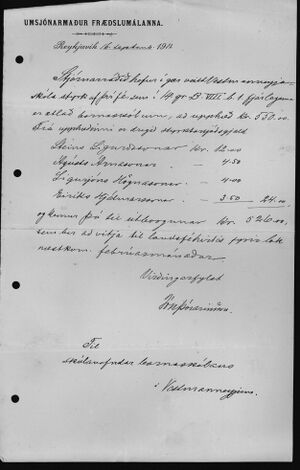 UMSJÓNARMAÐUR FRÆÐSLUMÁLANNA.
Reykjavík 16. september 191
Stjórnarráðið hefur í gær veitt Vestmannaeyja
skóla styrk af fé sem í 14. gr. B. VIII. b. 1 fjárlaganna
er ætlað barnaskólum, að upphæð kr. 530.00
Frá upphæðinni er dregið
Steins Sigurðssonar kr. 12.00
Ágústs Árnasonar - 4.50
Sigurjóns Högnasonar - 4.00
Eiríks Hjálmarssonar - 3.50
og kemur því til útborgunar kr.
sem ber að vitja til landsféhirðis fyrir lok
næstkom. febrúarmánaðar.
Virðingarfyllst
Til
skólanefndar barnaskólans
í Vestmannaeyjum.